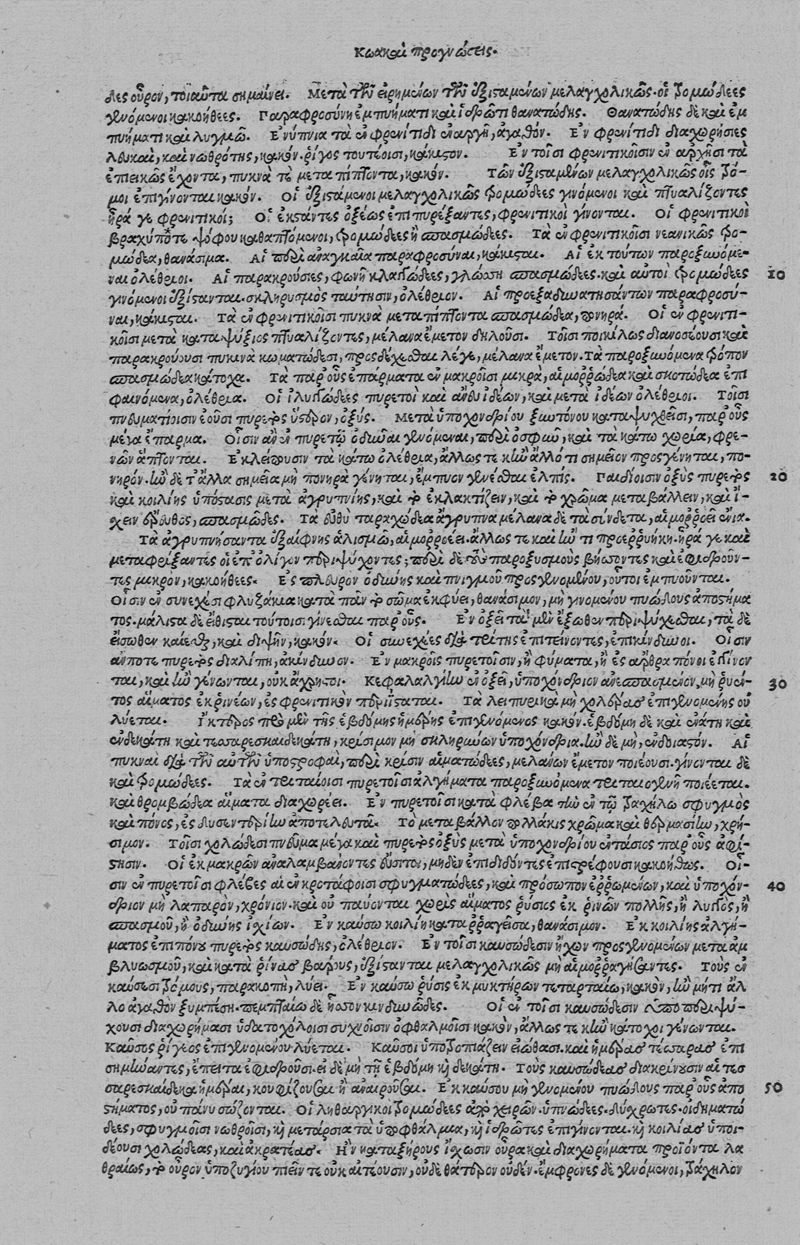 Κωακαὶ προγνώσεις.
δες οὖρον, τοιαῦτα σημαίνει. Μετὰ τῶν εἰρημένων τῶν ἐξισταμένων μελαγχολικῶς. οἱ τρομώδεες
γενόμενοι κακοήθεες. Παραφροσύνη ἐμπυήματι καὶ ἱδρῶτι θανατώδης. Θανατώδης δὲ καὶ ἐμ
πυήματι καὶ λυγμῷ. Ἐνύπνια τὰ ἐν φρενίτιδι ἐναργῆ, ἀγαθόν. Ἐν φρενίτιδι διαχωρήσιες
λευκαὶ, καὶ νωθρότης, κακόν. ῥῖγος τουτέοισι, κάκιστον. Ἐν τοῖσι φρενιτικοῖσιν ἐν ἀρχῇσι τὰ
ἐπιεικῶς ἔχοντα, πυκνὰ τε μεταπίπτοντα, κακόν. Τῶν ἐξισταμένων μελαγχολικῶς οἷς τρό-
μοι ἐπιγίνονται κακόν. Οἱ ἐξιστάμενοι μελαγχολικῶς τρομώδεες γινόμενοι καὶ πτυαλίζοντες
ἦρά γε φρενιτικοί; Οἱ ἐκστάντες ὀξέως ἐπιπυρέξαντες, φρενιτικοὶ γίνονται. Οἱ φρενιτικοὶ
βραχυπόται ψόφου καθαπτόμενοι, τρομώδεες ἢ σπασμώδεες. Τὰ ἐν φρενιτικοῖσι νεανικῶς τρο-
μώδεα, θανάσιμα. Αἱ περὶ ἀναγκαῖα παραφροσύναι, κάκισται. Αἱ ἐκ τούτων παροξυνόμε-
ναι ὀλέθριοι. Αἱ παρακρούσιες, φωνῇ κλαγγώδεες, γλώσσῃ σπασμώδεες. καὶ αὐτοὶ τρομώδεες 10
γινόμενοι ἐξίστανται. σκληρυσμὸς ταύτῃσιν, ὀλέθριον. Αἱ προεξαδυνατησάντων παραφροσύ-
ναι, κάκισται. Τὰ ἐν φρενιτικοῖσι πυκνὰ μεταπίπτοντα σπασμώδεα, πονηρά. Οἱ ἐν φρενιτι-
κοῖσι μετὰ καταψύξιος πτυαλίζοντες, μέλανα ἔμετον δηλοῦσι. Τοῖσι ποικίλως διανοσέουσι καὶ
παρακρούουσι πυκινὰ κωματώδεσι, προσδέχεσθαι λέγε, μέλανα ἔμετον. Τὰ παροξυνόμενα τρόπον
σπασμώδεα κάτοχα. Τὰ παρ' οὖς ἐπάρματα ἐν μακροῖσι μικρὰ, αἱμορρώδεα καὶ σκοτώδεα ἐπι
φαινόμενα, ὀλέθρια. Οἱ ἰλυγγώδεες πυρετοὶ καὶ ἄνευ εἰλεῶν, καὶ μετὰ ἰδέων ὀλέθριοι. Τοῖσι
πνευματίῃσιν ἐοῦσι πυρετὸς ὕστερον, ὀξύς. Μετὰ ὑποχονδρίου ξυντόνου καταψύχθεισι, παρ' οὖς
μέγα ἔπαρμα. Οἷσιν ἂν ἐν πυρετῷ ὀδύναι γενόμεναι, περὶ ὀσφὺν, καὶ τὰ κάτω χωρία, φρε-
νῶν ἅπτονται. Ἐκλείπουσιν τὰ κάτω ὀλέθρια, ἄλλως τε κἢν ἄλλό τι σημεῖον προσγένηται, πο-
νηρόν. ἢν δέ τ' ἄλλα σημεῖα μὴ πονηρὰ γένηται, ἔμπυον γενέσθαι ἐλπίς. Παιδίοισιν ὀξὺς πυρετὸς 20
καὶ κοιλίης ὑπόστασις μετὰ ἀγρυπνίης, καὶ τὸ ἐκλακτίζειν, καὶ τὸ χρῶμα μεταβάλλειν, καὶ ἴ-
σχειν ἔρευθος, σπασμῶδες. Τὰ εὐθὺ ταραχώδεα ἄγρυπνα μέλανα δὲ τὰ σύνδετα, αἱμορροεῖ ἔνια.
Τὰ ἀγρυπνήσαντα ἐξαίφνης ἁλισμῷ, αἱμορροέει. ἄλλως τε καὶ ἤν τι προερρυήκῃ. ἦρά γε καὶ
μεταφρίξαντες οἱ ἐπ' ὀλίγον περιψύχοντες, περὶ δὲ τοὺς παροξυσμοὺς βήσσοντες καὶ ἐφιδροῦν-
τες μικρὸν, κακοήθεες. Ἐς πλευρὸν ὀδύνης καὶ πνιγμοῦ προσγενομένου, οὗτοι ἐμπυοῦνται.
Οἷσιν ἐν συνεχέσι φλυζάκια κατὰ πᾶν τὸ σῶμα ἐκφύει, θανάσιμον, μὴ γινομένου πυώδους ἀποστήμα
τος. μάλιστα δὲ εἴθισται τούτοισι γίνεσθαι παρ' οὖς. Ἐν ὀξεῖ τὰ μὲν ἔξωθεν περιψύχεσθαι, τὰ δὲ
εἴσωθεν καίεσθαι, καὶ διψῆν, κακόν. Οἱ συνεχέες διὰ τρίτης ἐπιτείνοντες, ἐπικίνδυνοι. Οἷσιν
ἄν ποτε πυρετὸς διαλίπῃ, ἀκίνδυνον. Ἐν μακροῖς πυρετοῖσιν, ἢ φύματα, ἢ ἐς ἄρθρα πόνοι ἐγγίνον
ται, καὶ ἢν γένωνται, οὐκ ἄχρηστοι. Κεφαλαλγίην ἐν ὀξεῖ, ὑποχόνδριον ἀνεσπασμένον, μὴ ῥυέν- 30
τος αἵματος ἐκ ῥινέων, ἐς φρενιτικὸν περιΐσταται. Τὰ λειπυρικὰ μὴ χολέρας ἐπιγενομένης οὐ
λύεται. Ἴκτερος πρὸ μὲν τῆς ἑβδόμης ἡμέρης ἐπιγενόμενος κακόν. ἑβδόμῃ δὲ καὶ ἐνάτῃ καὶ
ἑνδεκάτῃ καὶ τεσσαρεσκαιδεκάτῃ, κρίσιμον μὴ σκληραίνων ὑποχόνδρια. ἢν δὲ μὴ, ἐνδοιαστόν. Αἱ
πυκναὶ διὰ τῶν αὐτῶν ὑποστροφαὶ, περὶ κρίσιν αἱματώδεες, μελάνων ἔμετον ποιέουσι. γίνονται δὲ
καὶ τρομώδεες. Τὰ ἐν τριταίοισι πυρετοῖσι ἀλγήματα παροξυνόμενα τριταιογενῆ ποιέεται.
καὶ θρομβώδεα αἵματα διαχωρέει. Ἐν πυρετοῖσι κατὰ φλέβα τὴν ἐν τῷ τραχήλῳ σφυγμὸς
καὶ πόνος, ἐς δυσεντερίην ἀποτελευτᾷ. Τὸ μεταβάλλον πολλάκις χρῶμα καὶ θερμασίην, χρή-
σιμον. Τοῖσι χολώδεσι πνεῦμα μέγα καὶ πυρετὸς ὀξὺς μετὰ ὑποχονδρίου ἐντάσιος παρ' οὖς ἀφί-
στησιν. Οἱ ἐκ μακρῶν ἀναλαμβάνοντες εὔσιτοι, μηδὲν ἐπιδιδόντες ἐπιστρέφουσι κακοήθως. Οἷ-
σιν ἐν πυρετοῖσι φλέβες αἱ ἐν κροτάφοισι σφυγματώδεες, καὶ πρόσωπον ἐρρωμένον, καὶ ὑποχόν- 40
δριον μὴ λαπαρὸν, χρόνιον. καὶ οὐ παύονται χωρὶς αἵματος ῥύσιος ἐκ ῥινῶν πολλῆς, ἢ λυγγὸς, ἢ
σπασμοῦ, ἢ ὀδύνης ἰσχίων. Ἐν καύσῳ κοιλίη καταρραγεῖσα, θανάσιμον. Ἐκ κοιλίης ἀλγή-
ματος ἐπιπόνου πυρετὸς καυσώδης, ὀλέθριον. Ἐν τοῖσι καυσώδεσιν ἤχων προσγενομένων μετὰ ἀμ
βλυωσμοῦ, καὶ κατὰ ῥῖνας βάρους, ἐξίστανται μελαγχολικῶς μὴ αἱμορραγήσαντες. Τοὺς ἐν
καύσεσι τρόμους, παρακοπὴ, λύει. Ἐν καύσῳ ῥύσις ἐκ μυκτήρων τεταρταίῳ, κακὸν, ἢν μή τι ἄλ
λο ἀγαθὸν ξυμπέσῃ. πεμπταίῳ δὲ ἧσσον κινδυνῶδες. Οἱ ἐν τοῖσι καυσώδεσιν ὑπὸ περιψύ-
χουσι διαχωρήμασι ὑδατοχόλοισι συχνοῖσιν ὀφθαλμοῖσι κακὸν, ἄλλως τε κἢν κάτοχοι γένωνται.
Καῦσος ῥίγεος ἐπιγενομένου λύεται. Καῦσοι ὑποτροπιάζειν εἰώθασι. καὶ ἡμέρας τέσσαρας ἐπι
σημήναντες, ἔπειτα ἐφιδροῦσι. εἰ δὲ μὴ τῇ ἑβδόμῃ κἢ δεκάτῃ. Τοὺς καυσώδεας διακρίνουσιν αἱ τεσ
σαρεσκαίδεκα ἡμέραι, κουφίζουσαι ἢ ἀναιροῦσαι. Ἐκ καύσου μὴ γενομένου πυώδους παρ' οὖς ἀπο 50
στήματος, οὐ πάνυ σώζονται. Οἱ ληθαργικοὶ τρομώδεες ἀπὸ χειρῶν. ὑπνώδεες. δύσχρωτες. οἰδηματώ
δεες, σφυγμοῖσι νωθροῖσι, κἢ μετάρσια τὰ ὑπόφθαλμα, κἢ ἱδρῶτες ἐπιγίνονται. κἢ κοιλίας ὑποι-
δέουσι χολώδεας, καὶ ἀκρατέας. Ἢν καταξήρους ἴσχωσιν οὖρα καὶ διαχωρήματα προϊόντα λα
θραίως, τὸ οὖρον ὑποζυγίου πιεῖν τε οὐκ αἰτέουσιν, οὐδὲ θάτερον οὐδέν. ἔμφρονες δὲ γενόμενοι, τράχηλον